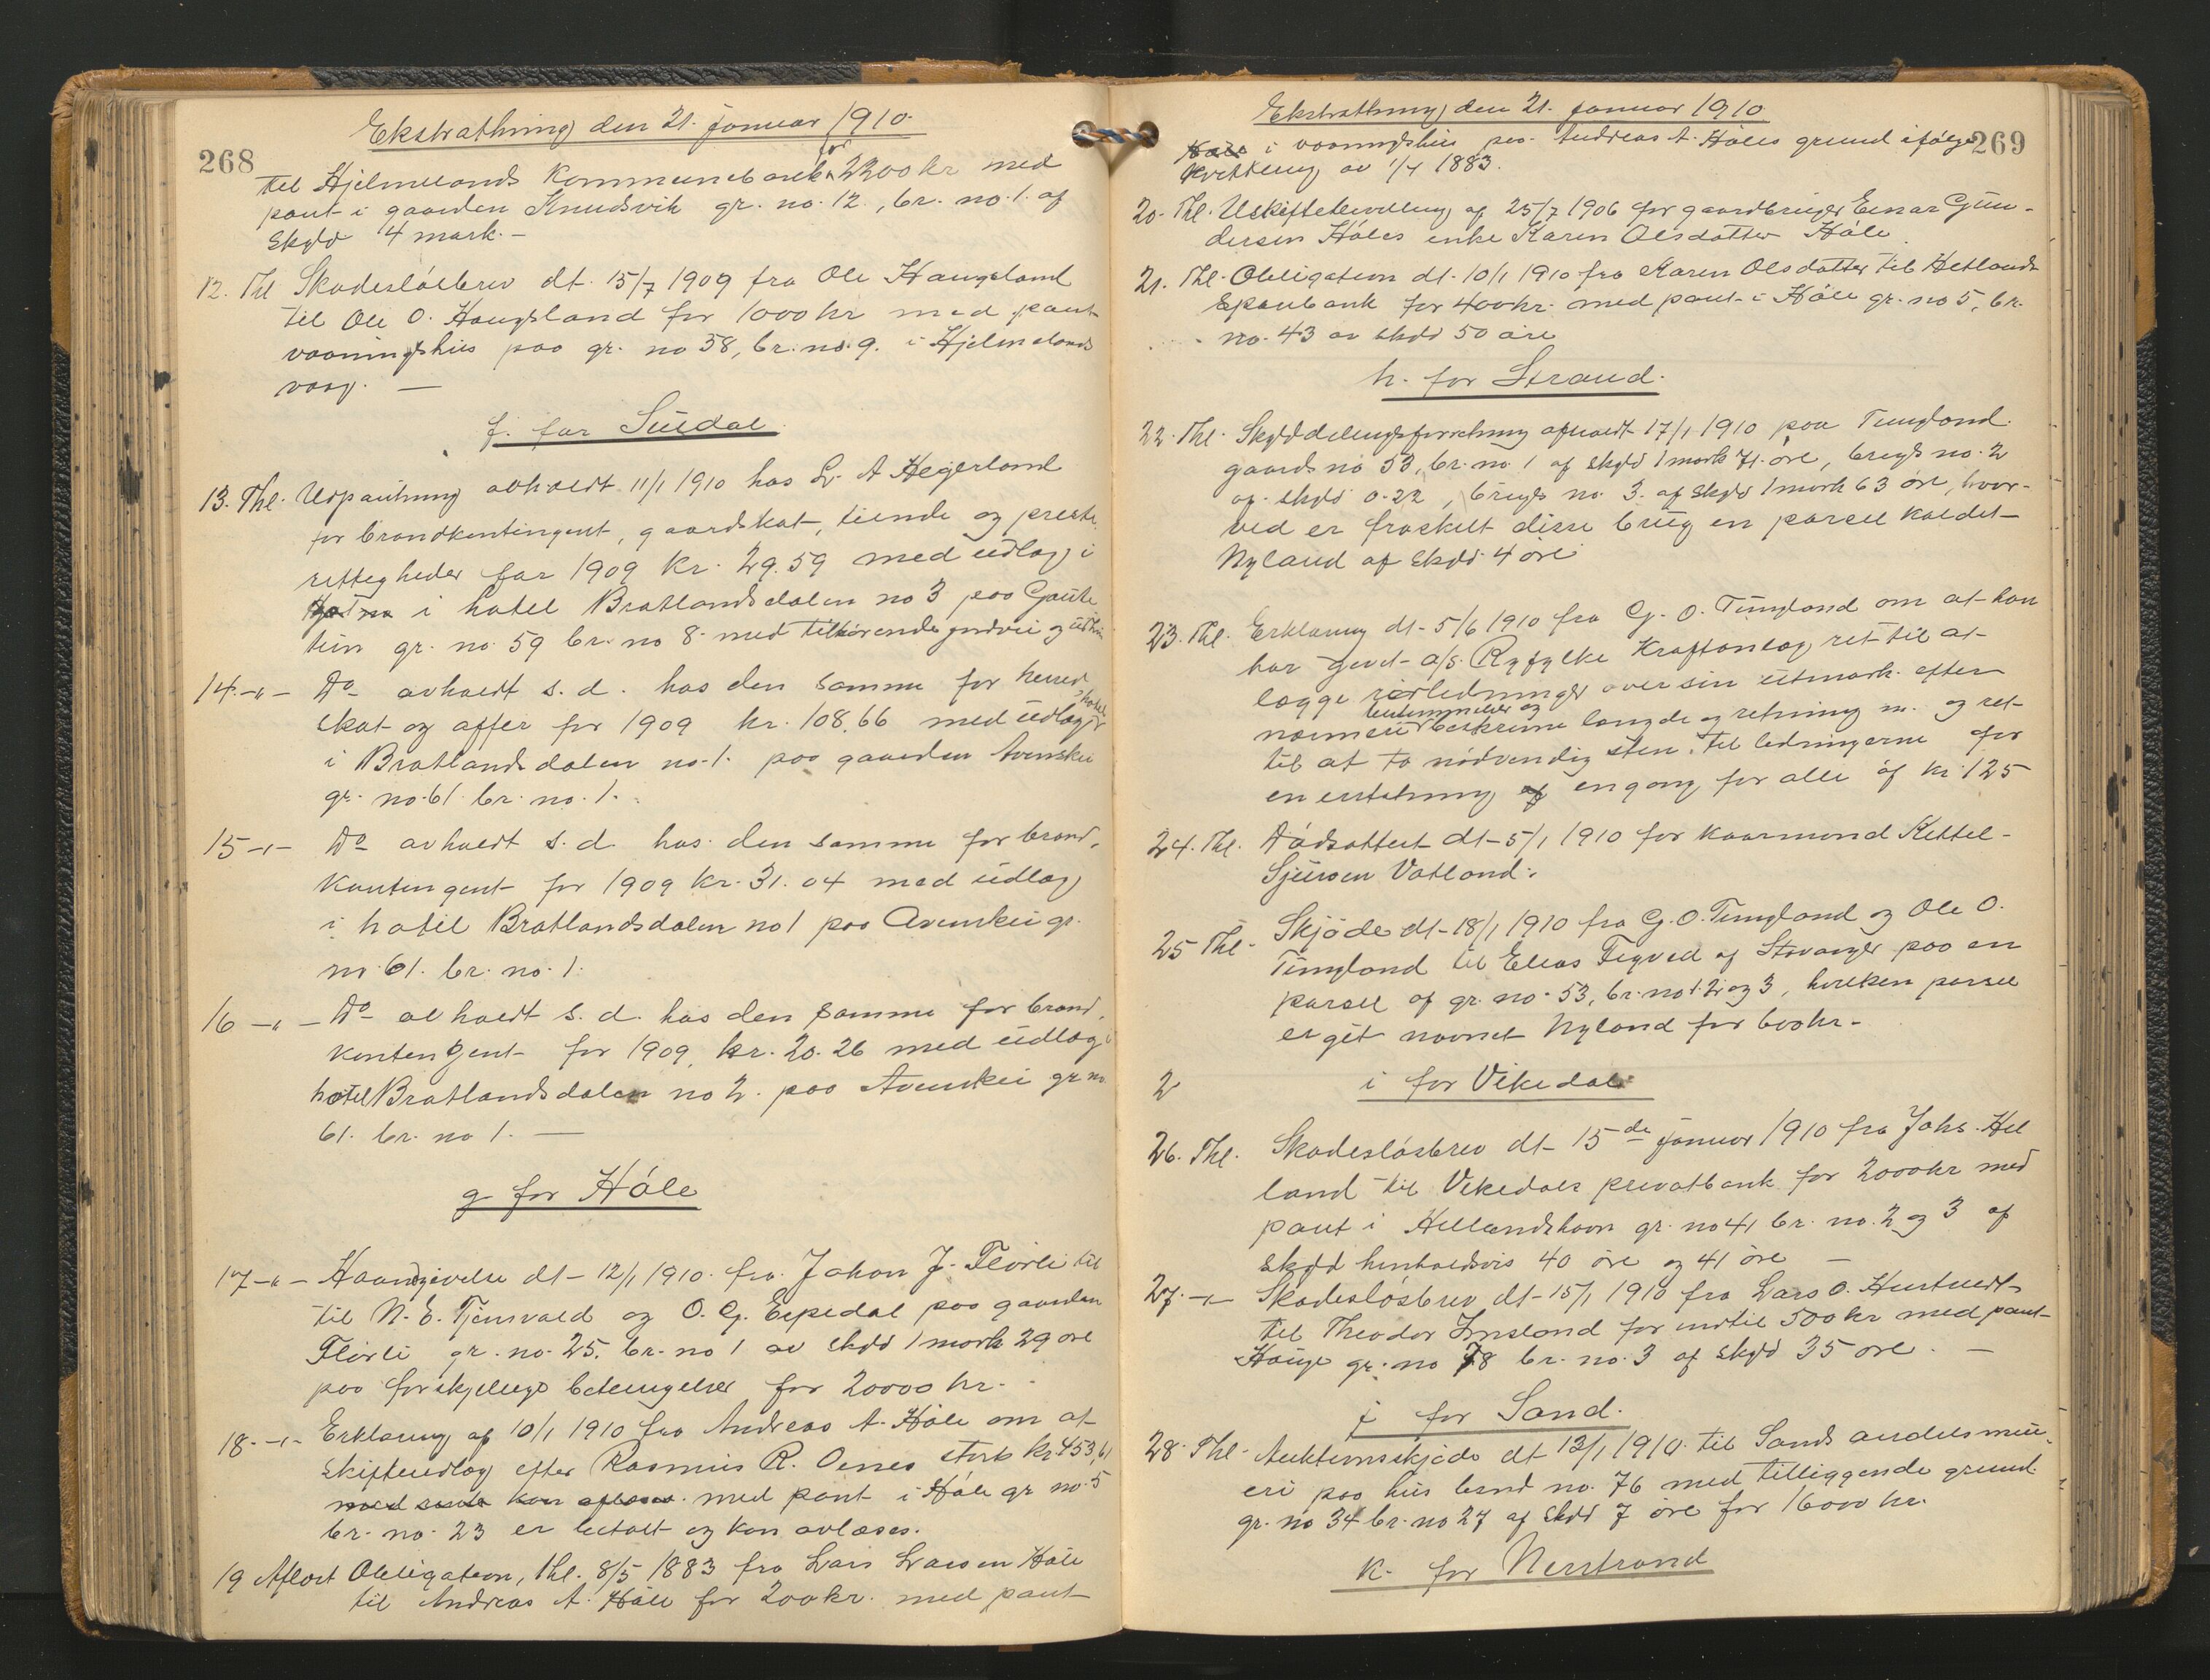 Ekstrathing den 21. januar 1910.
268
til Hjelmelands Kommunebank for 2200 kr med
pant i gaarden Knudsvik gr. no. 12, br. no. 1. af
skyld 4 mark. –
12. Thl Skadesløsbrev dt. 15/7 1909 fra Ole Haugsland
til Ole O. Haugsland for 1000 kr med pant
vaaningshus paa gr. no 58, br. no. 9. i Hjelmelands
vaag. –
f. for Suldal
13. Thl. Udpantning avholdt 11/1 1910 hos L. A Hegerland
for brandkontingent, gaardskat, tiende og preste
rettigheder for 1909 kr. 29.59 med udlæg i
i hotel Bratlandsdalen no 3 paa Gaute
tun gr. no. 59 br. no 8. med tilhørende jordvei og
14. -"- Do avholdt s. d. hos den samme for herred
skat og offer for 1909 kr. 108.66 med udlæg i hotel
i Bratlandsdalen no. 1. paa gaarden Svenskei
gr. no. 61 br. no. 1.
15 -"- Do avholdt s. d. hos den samme for brand,
kontingent for 1909 kr. 31.04 med udlæg
i hotel Bratlandsdalen no 1 paa Avenskei gr.
no 61. br. no. 1.
16 -"- Do avholdt s. d. hos den samme for brand,
kontengent for 1909 kr. 20.26 med udlæg i
hotel Bratlandsdalen no 2. paa Avenskei gr no
61. br. no 1. –
g for Høle
17 -"- Haandgivelse dt – 12/1 1910. fra Johan J. Fløirli til
til N. E. Tjensvold og O. G. Espedal paa gaarden
Fløirli gr. no. 25. br. no 1 av skyld 1 mark 29 øre
paa forskjellige betingelser for 20000 kr. –
18. -"- Erklæring af 10/1 1910 fra Andreas A. Høle om at
skifteudlæg efter Rasmus R. Oenes stort kr 453,61
med pant i Høle gr no. 5
br. no. 23 er betalt og kan avlæses.
19 Aflæst Obligation, thl. 8/5 1883 fra Lars Larsen Høle
til Andreas A. Høle for 200 kr. med pant
Ekstrathing den 21. januar 1910
269
i vaaningshus paa Andreas A. Høles grund ifølge
Kvittering av 1/4 1883.
20. Thl. Uskiftebevilling af 25/7 1906 for gaardbruger Einar Gun-
dersen Høles enke Karen Olsdatter Høle
21. Thl. Obligation dt. 10/1 1910 fra Karen Olsdatter til Hetlands
Sparebank for 400 kr. med pant i Høle gr. no 5, br.
no. 43 av skyld 50 øre
h. for Strand.
22. Thl. Skylddelingsforretning afholdt 17/1 1910 paa Tungland
gaards no 53, br. no. 1 af skyld 1 mark 71 øre, brugs no. 2
af skyld 0.22, brugs no. 3. af skyld 1 mark 63 øre, hvor-
ved er fraskilt disse brug en parsel kaldet
Nyland af skyld 4 øre
23. Thl. Erklæring dt – 5/6 1910 fra G. O. Tungland om at han
har givet a/s. Ryfylke Kraftanlæg ret til at
lægge rørledninger over sin utmark efter
bestemmelser og
nærmere beskrevne længde og retning m. og ret
til at ta nødvendig sten til ledningerne for
en erstatning engang for alle af kr. 125
24. Thl. Dødsattest dt – 5/1 1910 for kaarmand Kettel
Sjursen Vatland.
25 Thl. Skjøde dt – 18/1 1910 fra G. O. Tungland og Ole O.
Tungland til Elias Tegved af Stavanger paa en
parsel af gr. no. 53, br. no 1. 2 og 3, hvilken parsel
er git navnet Nyland for 600 kr. –
2 i for Vikedal
26. Thl. Skadesløsbrev dt – 15de januar 1910 fra Johs. Hel
land til Vikedals privatbank for 2000 kr med
pant i Hellandshavn gr. no 41 br. no. 2 og 3 af
skyld henholdsvis 40 øre og 41 øre –
27. -"- Skadesløsbrev dt – 15/1 1910 fra Lars O. Hustvedt
til Theodor Imsland for indtil 500 kr med pant
Hauge gr. no 78 br. no. 3 af skyld 35 øre. –
j for Sand.
28. Thl. Auktionsskjøde dt 13/1 1910. til Sands andelsmei-
eri paa hus brnd no. 76 med tilliggende grund
gr. no 34 br. no 27 af skyld 7 øre for 16000 kr.
k. for Nerstrand